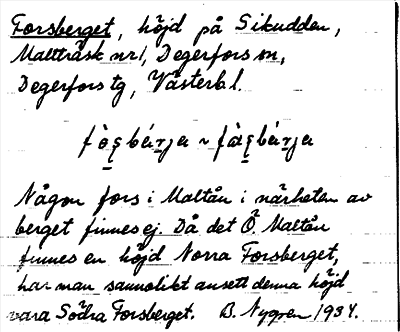 Forsberget, höjd på Sikudden,
Malträsk nr 1, Degerfors sn,
Degerfors tg, Västerb. l.
Någon fors i Maltån i närheten av
berget finnes ej. Då det Ö. Maltån
finnes en höjd Norra Forsberget,
har man sannolikt ansett denna höjd
vara Södra Forsberget. B. Nygren 1934.